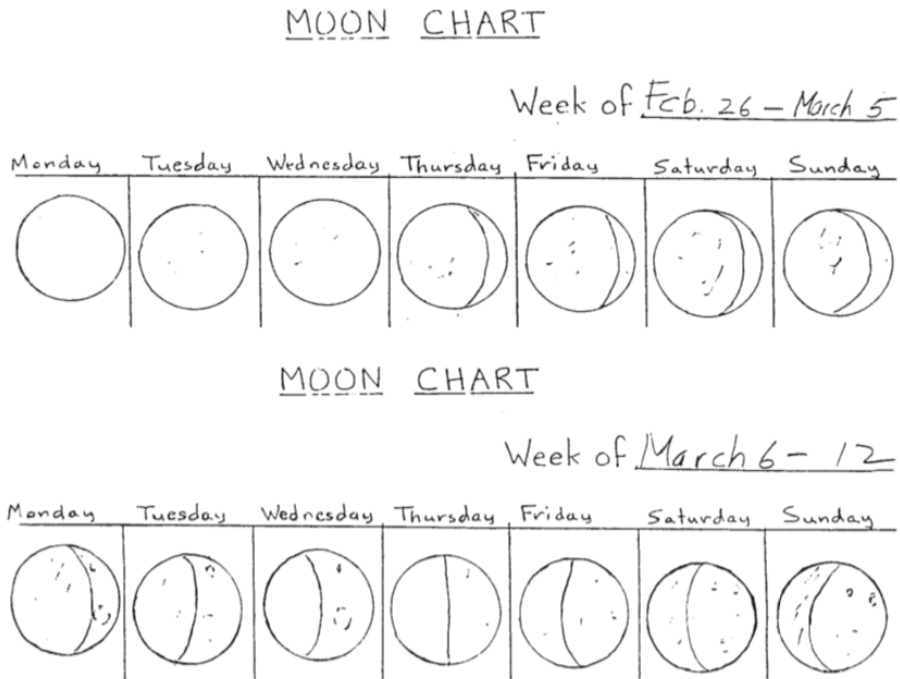 MOON CHART
Week of Feb. 26 - March 5
Monday Tuesday Wednesday Thursday Friday Saturday Sunday
MOON CHART
Week of March 6 - 12
Monday Tuesday Wednesday Thursday Friday Saturday Sunday